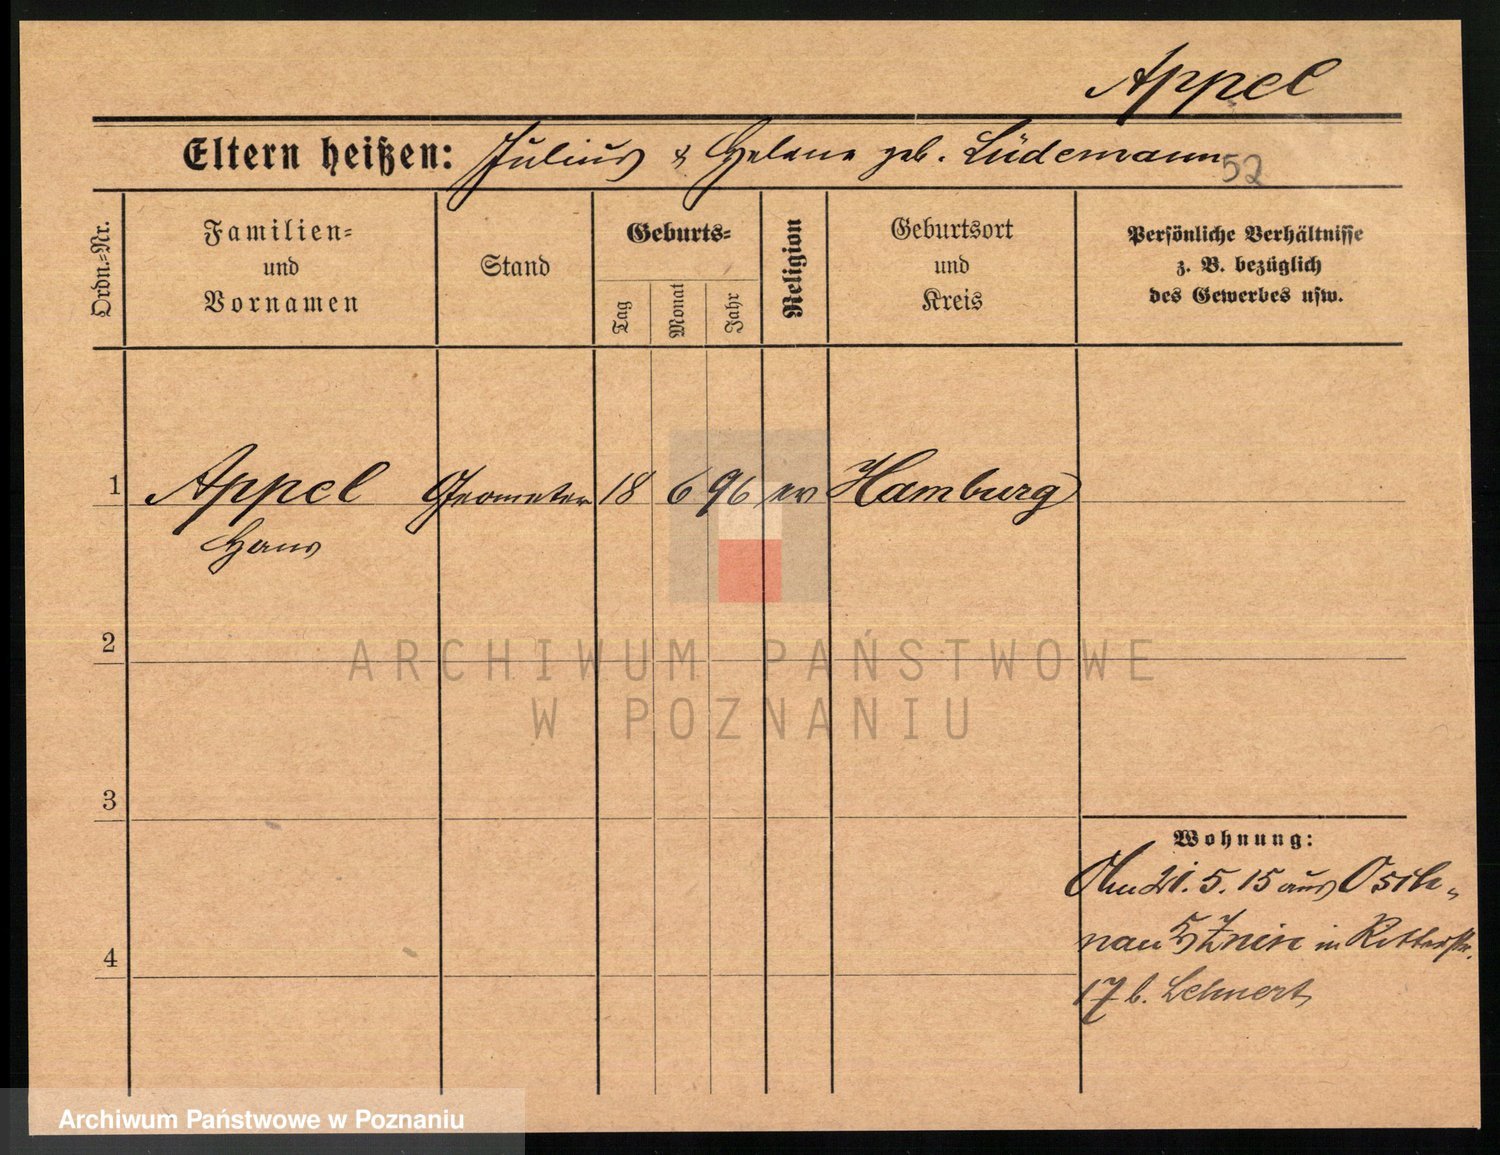 Appel
Eltern heißen: Julius & Helene geb. Lüdemann
52
Ordn.-Nr.
Familien-
und
Vornamen
Stand
Geburts-
Tag
Monat
Jahr
Religion
Geburtsort
und
Kreis
Persönliche Verhältnisse
z. B. bezüglich
des Gewerbes usw.
1 Appel Geometer 18 6 96 ev Hamburg
Hans
2
ARCHIWUM PAŃSTWOWE
W POZNANIU
3
Wohnung:
21. 5. 15 aus
nau Znin in Ritterstr.
4
17 b. Lehnert
Archiwum Państwowe w Poznaniu